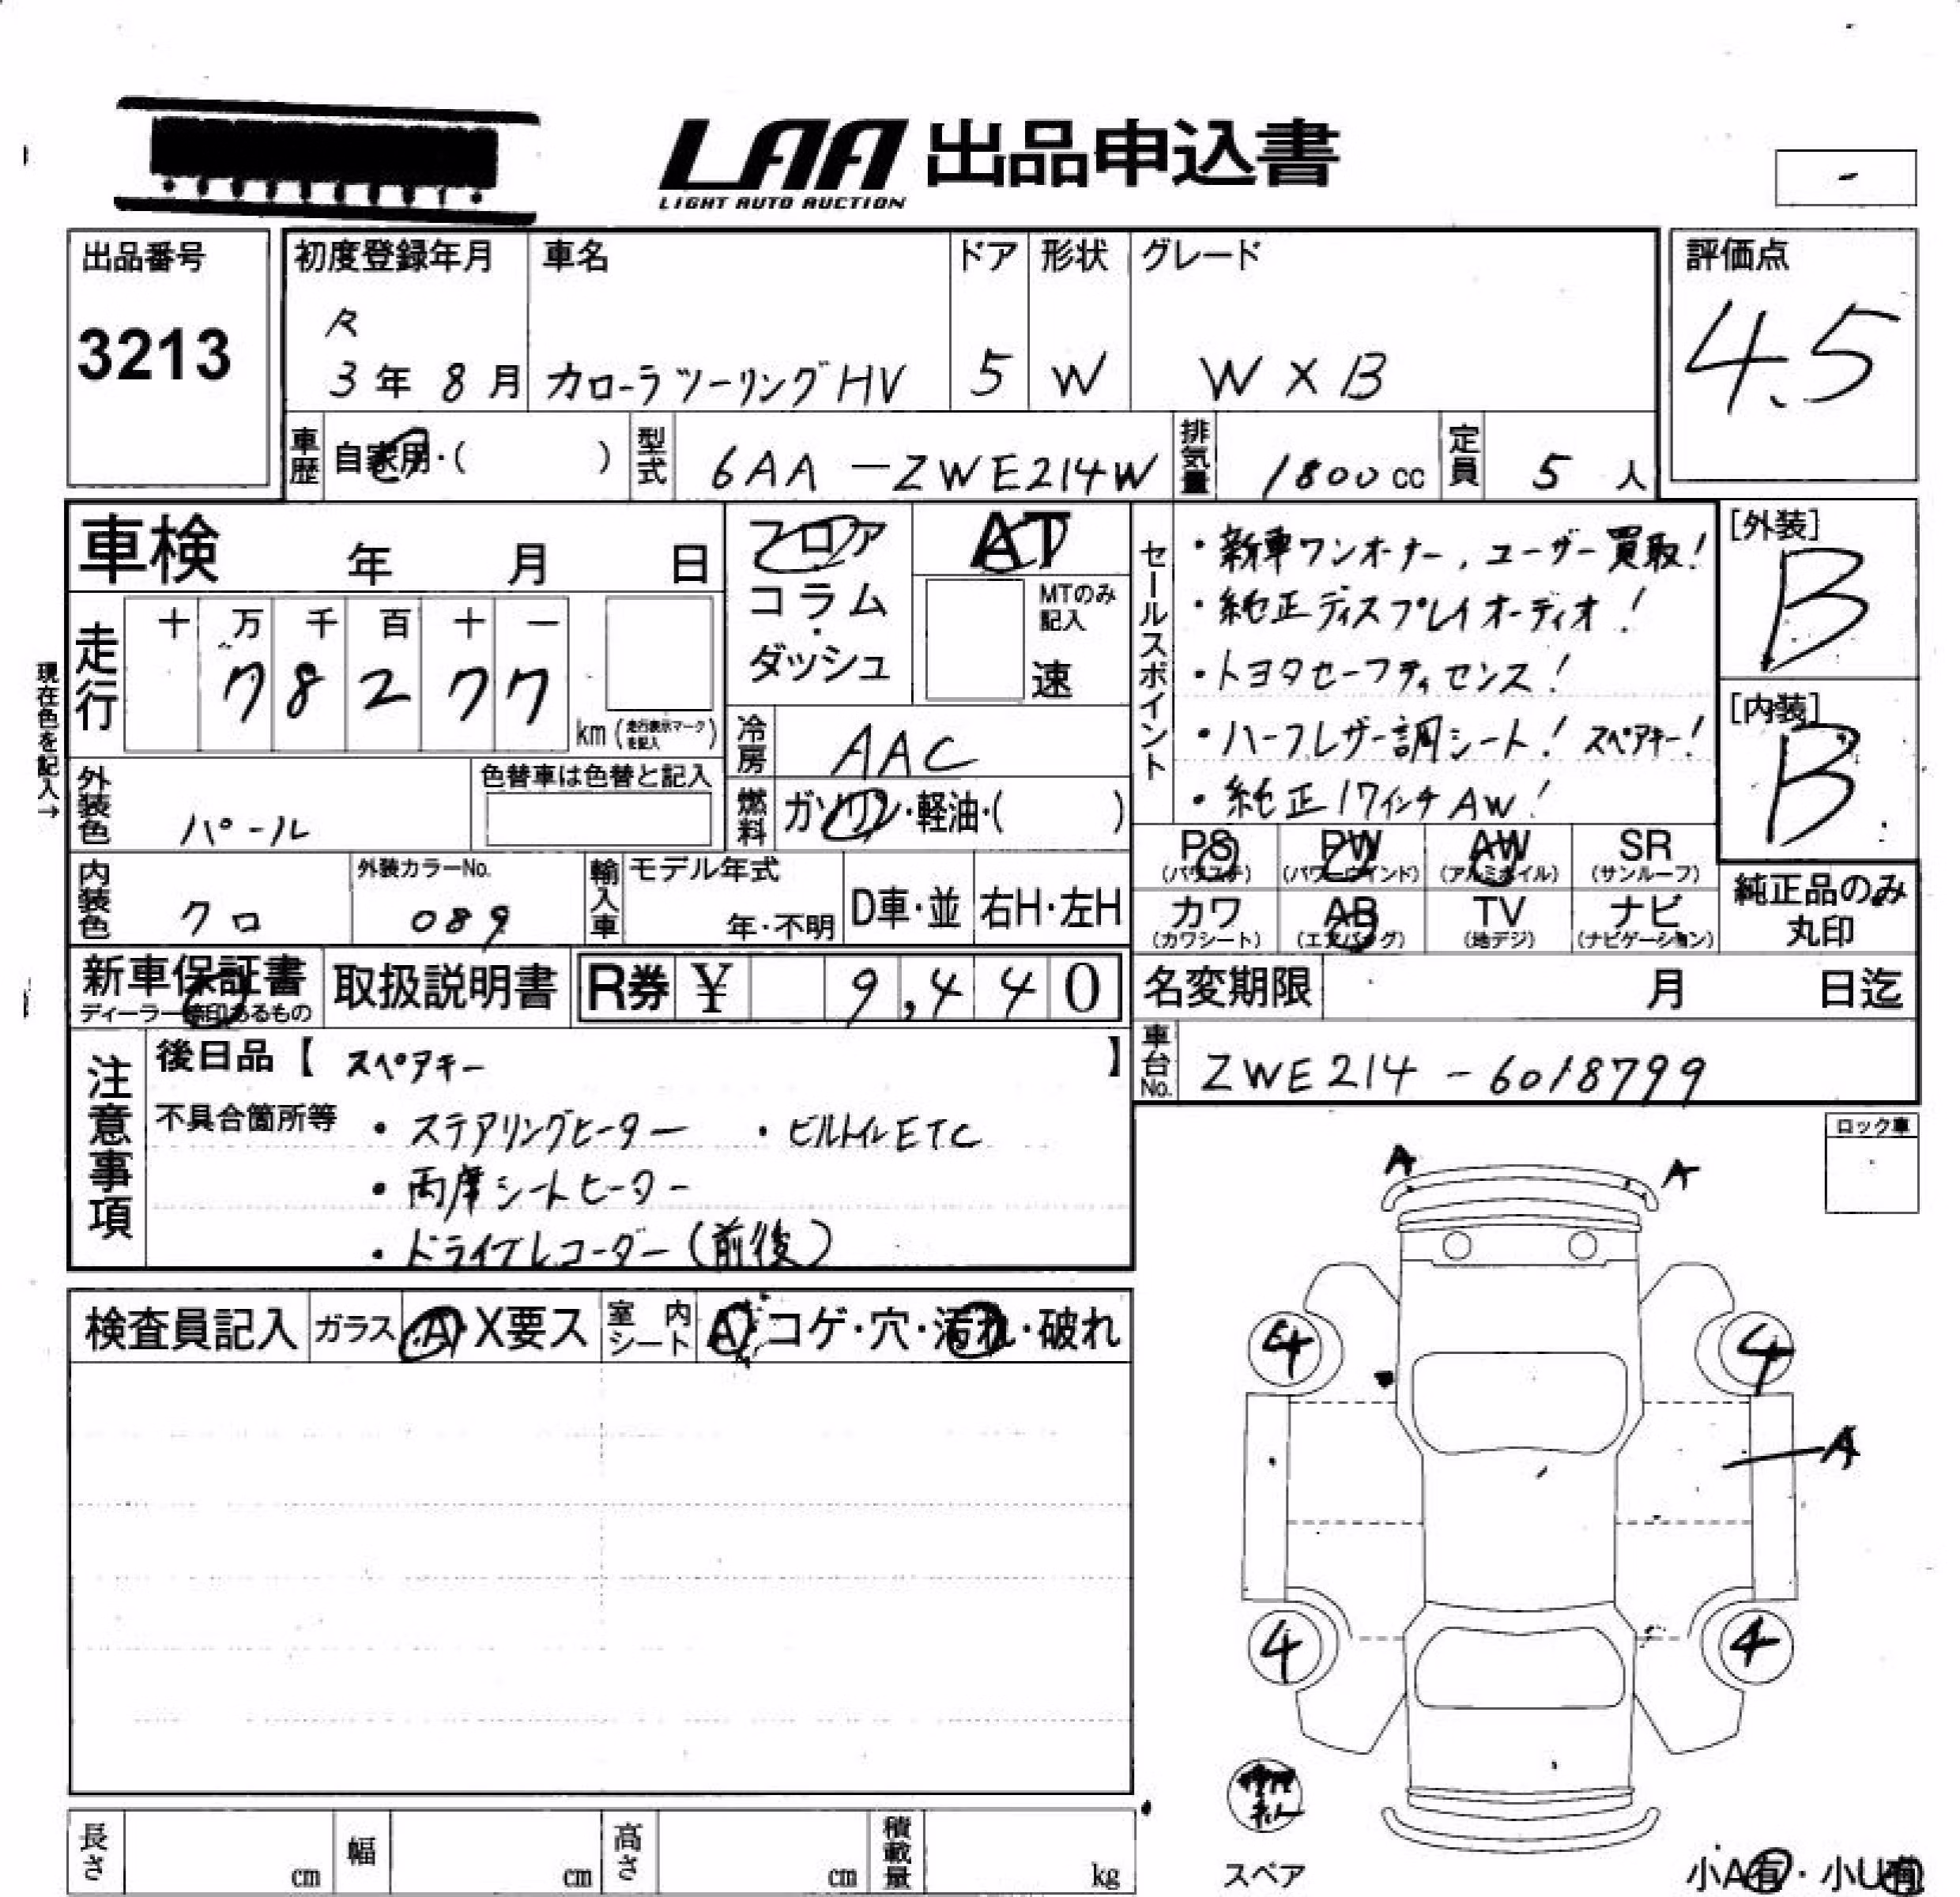 LAA 出品申込書
LIGHT AUTO AUCTION
-
出品番号
3213
初度登録年月
R
3年 8月
車名
カローラツーリングHV
ドア
5
形状
W
グレード
W×B
評価点
4.5
車歴 自家用・( )
型式 6AA-ZWE214W
排気量 1800cc
定員 5人
車検 年 月 日
フロア
コラム
・
ダッシュ
AT
MTのみ記入
速
セールスポイント
・新車ワンオーナー,ユーザー買取!
・純正ディスプレイオーディオ!
・トヨタセーフティセンス!
・ハーフレザー調シート! スペアキー!
・純正17インチAW!
[外装]
B
[内装]
B
現在色を記入→
走行
十 万 千 百 十 一
7 8 2 7 7
km (走行表示マークを記入)
冷房 AAC
燃料 ガソリン・軽油・( )
外装色 パール
色替車は色替と記入
内装色 クロ
外装カラーNo.
089
輸入車
モデル年式
年・不明
D車・並
右H・左H
PS
(パワステ)
PW
(パワーウインド)
AW
(アルミホイル)
SR
(サンルーフ)
カワ
(カワシート)
AB
(エアバッグ)
TV
(地デジ)
ナビ
(ナビゲーション)
純正品のみ
丸印
新車保証書
ディーラー捺印あるもの
取扱説明書
R券 ¥ 9,440
名変期限 月 日迄
車台No. ZWE214-6018799
注意事項
後日品【 スペアキー 】
不具合箇所等
・ステアリングヒーター ・ビルトインETC
・両席シートヒーター
・ドライブレコーダー(前後)
ロック車
検査員記入
ガラス A・X要ス
室内シート A・コゲ・穴・汚れ・破れ
A A
4 4
A
4 4
スペア
小A有・小U有
長さ cm
幅 cm
高さ cm
積載量 kg